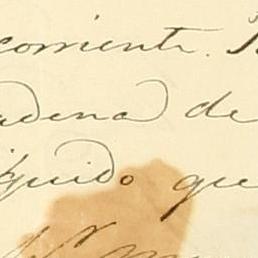 corriente.
adena de
iquido que